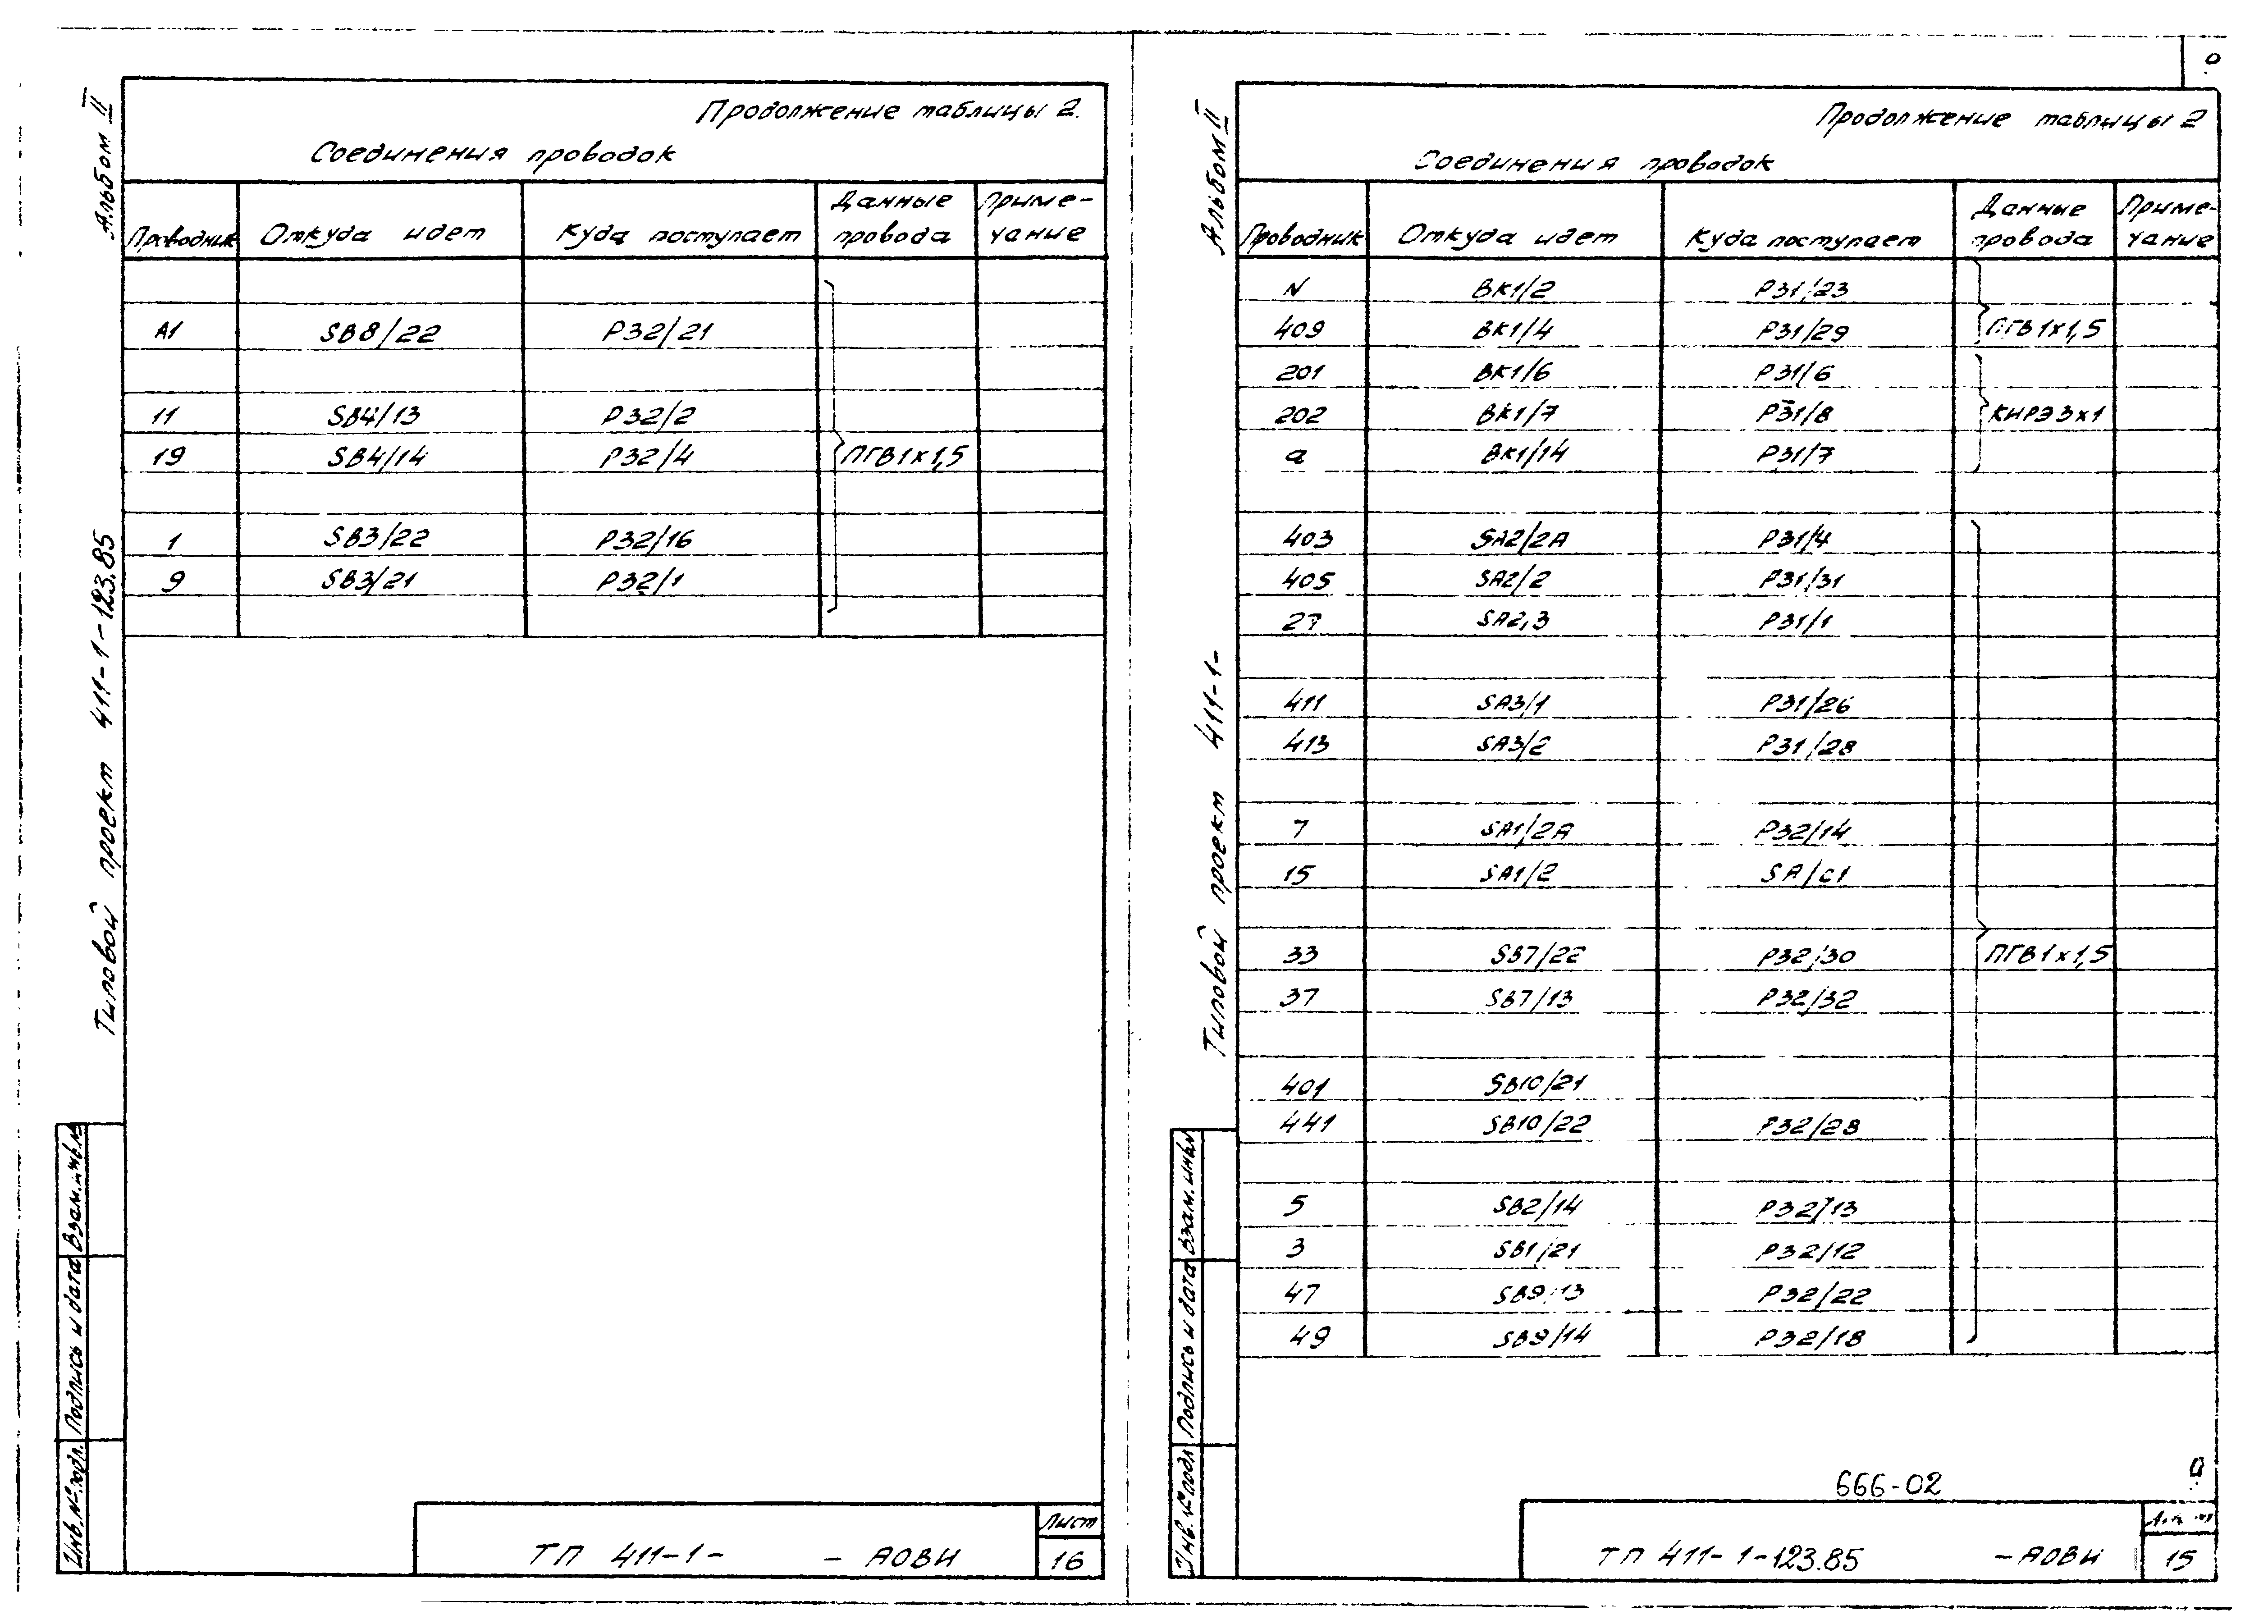 Альбом II
Типовой проект 411-1-123.85
Продолжение таблицы 2.
Соединения проводок
Проводник Откуда идет Куда поступает Данные провода Приме-чание
А1 SB8/22 Р32/21
11 SB4/13 Р32/2
19 SB4/14 Р32/4 ПГВ1х1,5
1 SB3/22 Р32/16
9 SB3/21 Р32/1
Инв.№подл. Подпись и дата Взам.инв.№
ТП 411-1- - АОВИ
Лист
16
Альбом II
Типовой проект 411-1-
Продолжение таблицы 2
Соединения проводок
Проводник Откуда идет Куда поступает Данные провода Приме-чание
N ВК1/2 Р31/23
409 ВК1/4 Р31/29 ПГВ1х1,5
201 ВК1/6 Р31/6
202 ВК1/7 Р31/8 КНРЭ3х1
а ВК1/14 Р31/7
403 SA2/2A Р31/4
405 SA2/2 Р31/31
27 SA2,3 Р31/1
411 SA3/1 Р31/26
413 SA3/2 Р31/28
7 SA1/2A Р32/14
15 SA1/2 SA/C1
33 SB7/22 Р32/30 ПГВ1х1,5
37 SB7/13 Р32/32
401 SB10/21
441 SB10/22 Р32/28
5 SB2/14 Р32/13
3 SB1/21 Р32/12
47 SB9/13 Р32/22
49 SB9/14 Р32/18
Инв.№подл Подпись и дата Взам.инв№
666-02
ТП 411-1-123.85 -АОВИ
15